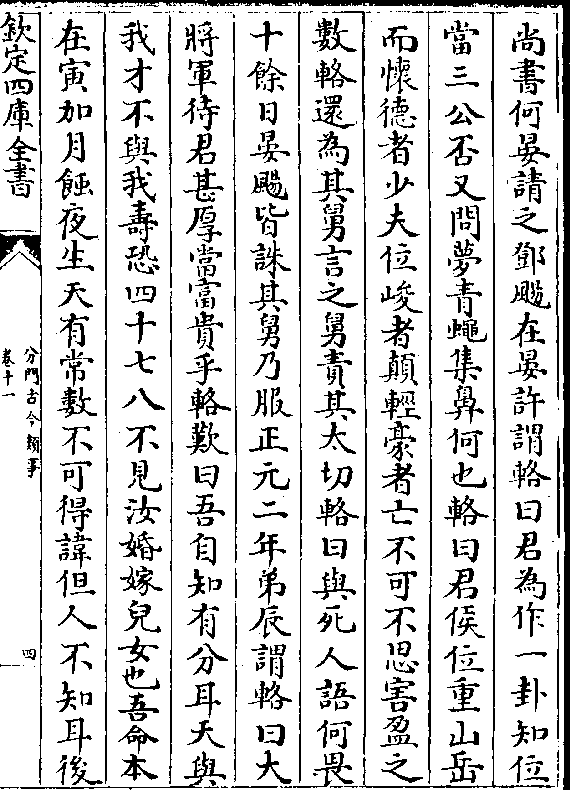 尚書何晏請之鄧颺在晏許謂輅曰君為作一卦知位
當三公否又問夢青蠅集鼻何也輅曰君侯位重山岳
而懷德者少夫位峻者顛輕豪者亡不可不思害盈之
數輅還為其舅言之舅責其太切輅曰與死人語何畏
十餘日晏颺皆誅其舅乃服正元二年弟辰謂輅曰大
將軍待君甚厚當富貴乎輅歎曰吾自知有分耳天與
我才不與我壽恐四十七八不見汝婚嫁兒女也吾命本
在寅加月蝕夜生天有常數不可得諱但人不知耳後
欽定四庫全書
分門古今類事
卷十一
四